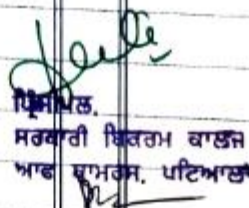 ਪ੍ਰਿੰਸੀਪਲ.
ਸਰਕਾਰੀ ਬਿਕਰਮ ਕਾਲਜ
ਆਫ ਕਾਮਰਸ. ਪਟਿਆਲਾ